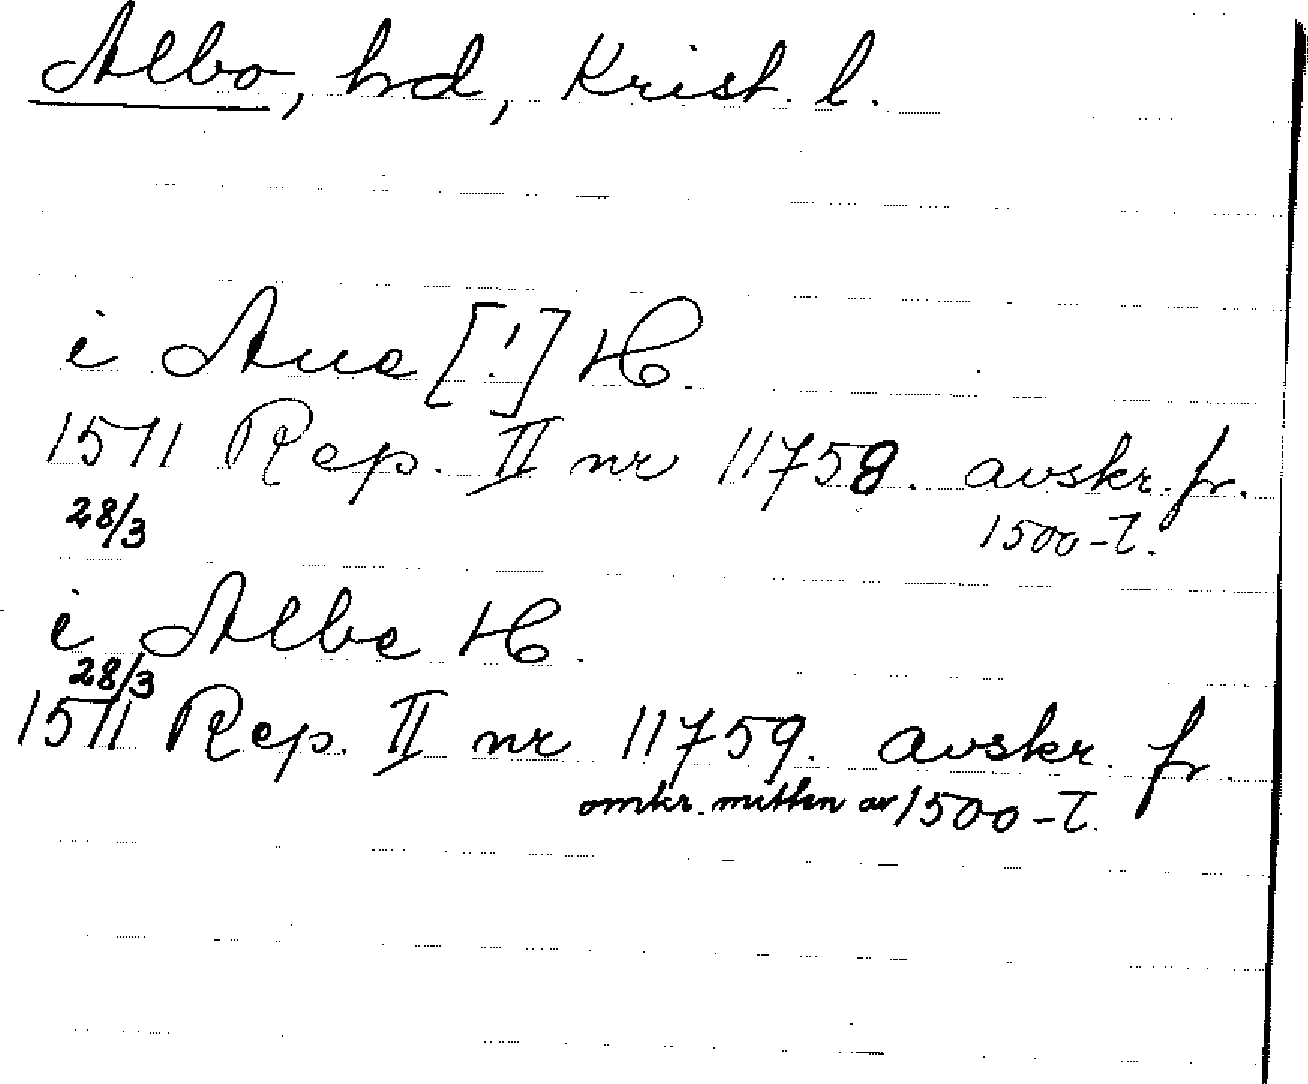 Albo, hd, Krist. l.
i Aue [!] H.
1511 Rep. II nr 11758. avskr. fr.
28/3
1500-t.
i Albe H.
28/3
1511 Rep. II nr 11759. avskr. fr.
omkr. mitten av 1500-t.